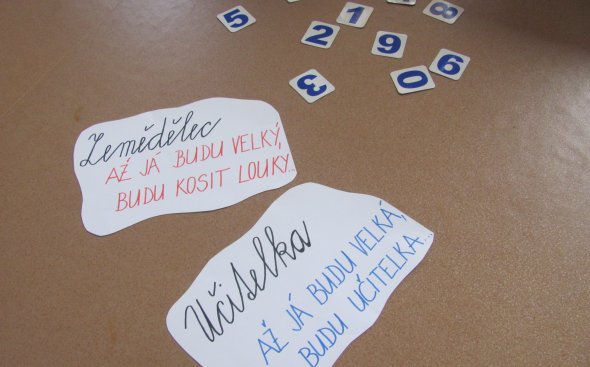 5
1
8
2
9
6
3
0
Zemědělec
AŽ JÁ BUDU VELKÝ,
BUDU KOSIT LOUKY...
Učitelka
AŽ JÁ BUDU VELKÁ,
BUDU UČITELKA...